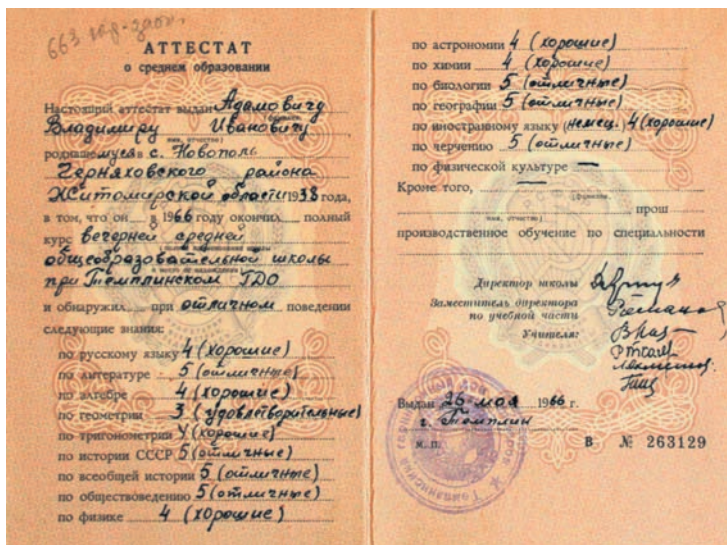 663 
АТТЕСТАТ
о среднем образовании
Настоящий аттестат выдан Адамовичу
Владимиру Ивановичу
имя, отчество)
родившемуся в с. Новополь
Черняховского района
Житомирской области 1938 года,
в том, что он в 1966 году окончил полный
курс вечерней средней
общеобразовательной школы
при Темплинском ГДО
и обнаружил при отличном поведении
следующие знания:
по русскому языку 4 (хорошие)
по литературе 5 (отличные)
по алгебре 4 (хорошие)
по геометрии 3 (удовлетворительные)
по тригонометрии 4 (хорошие)
по истории СССР 5 (отличные)
по всеобщей истории 5 (отличные)
по обществоведению 5 (отличные)
по физике 4 (хорошие)
по астрономии 4 (хорошие)
по химии 4 (хорошие)
по биологии 5 (отличные)
по географии 5 (отличные)
по иностранному языку (немец.) 4 (хорошие)
по черчению 5 (отличные)
по физической культуре —
Кроме того, —
(фамилия,
прош
имя, отчество)
производственное обучение по специальности
Директор школы
Заместитель директора
по учебной части
Учителя:
Выдан 26 мая 1966 г.
г. Темплин
м. п.
В № 263129